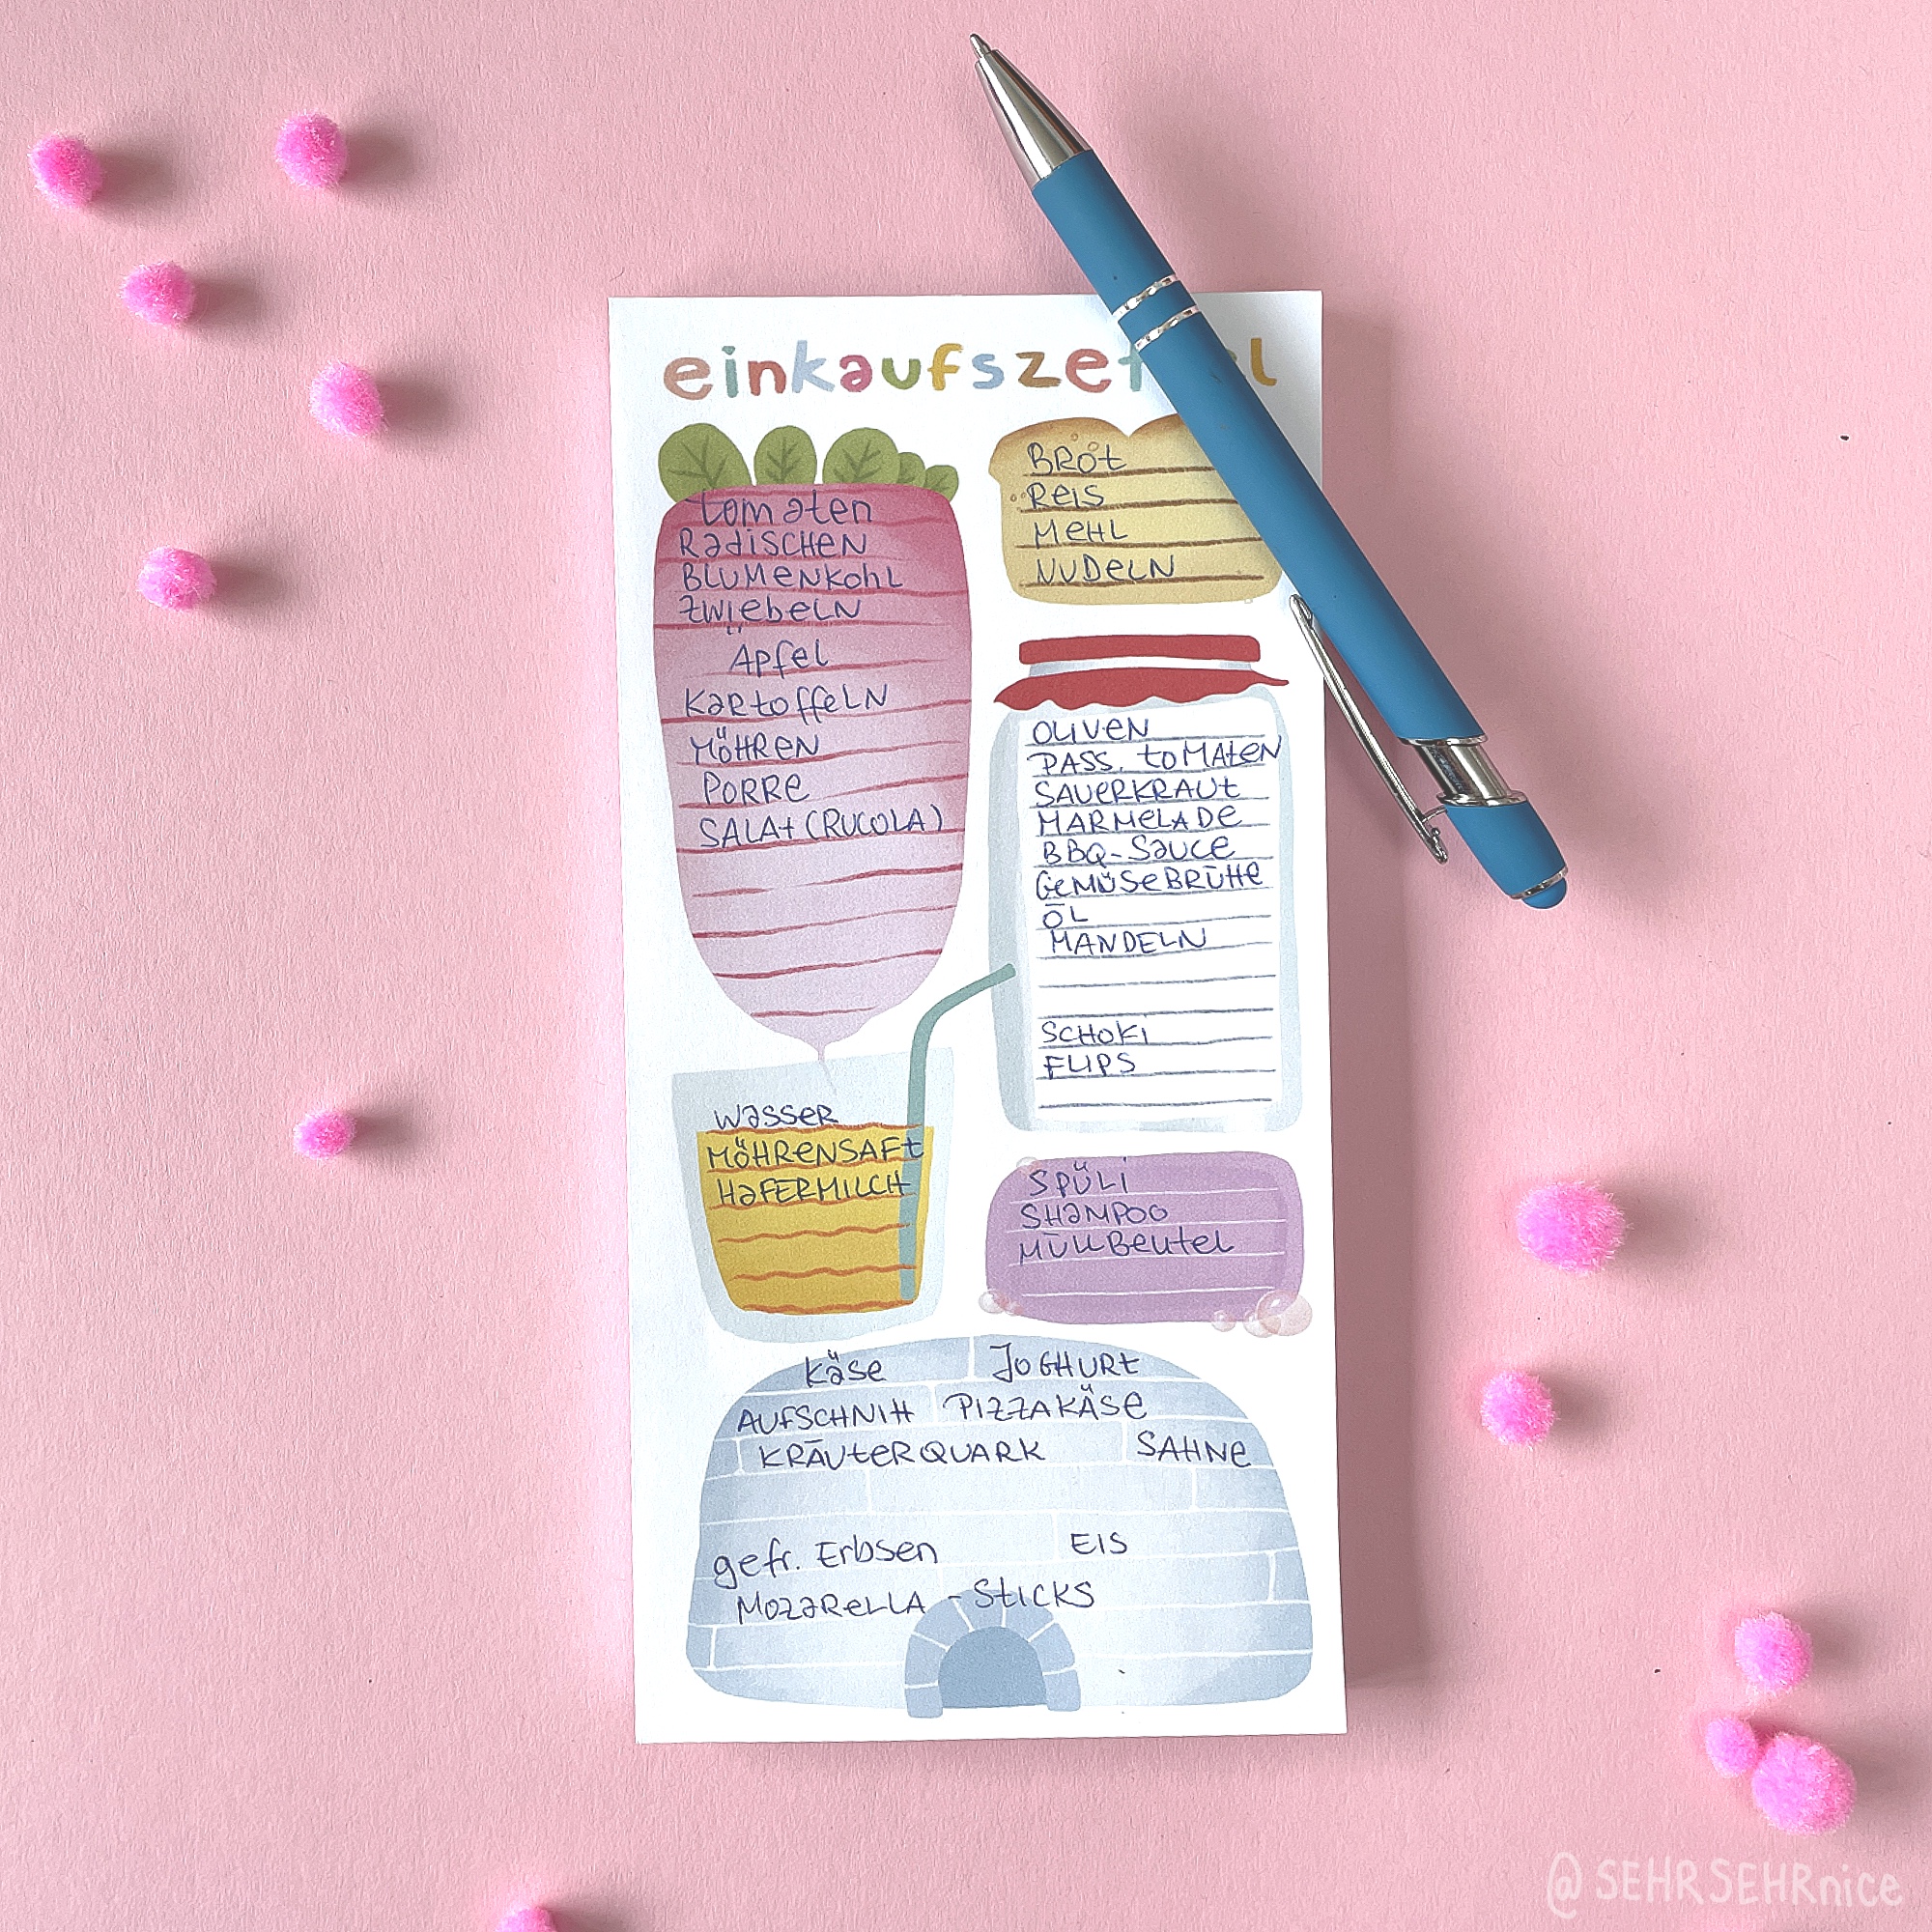 einkaufszettel
tomaten
Radischen
Blumenkohl
Zwiebeln
Äpfel
Kartoffeln
Möhren
Porre
Salat (Rucola)
Brot
Reis
Mehl
Nudeln
Oliven
Pass. Tomaten
Sauerkraut
Marmelade
BBQ-Sauce
Gemüsebrühe
Öl
Mandeln
Schoki
Flips
Wasser
Möhrensaft
Hafermilch
Spüli
Shampoo
Müllbeutel
Käse Joghurt
Aufschnitt Pizzakäse
Kräuterquark Sahne
gefr. Erbsen Eis
Mozarella - Sticks
@SEHRSEHRnice